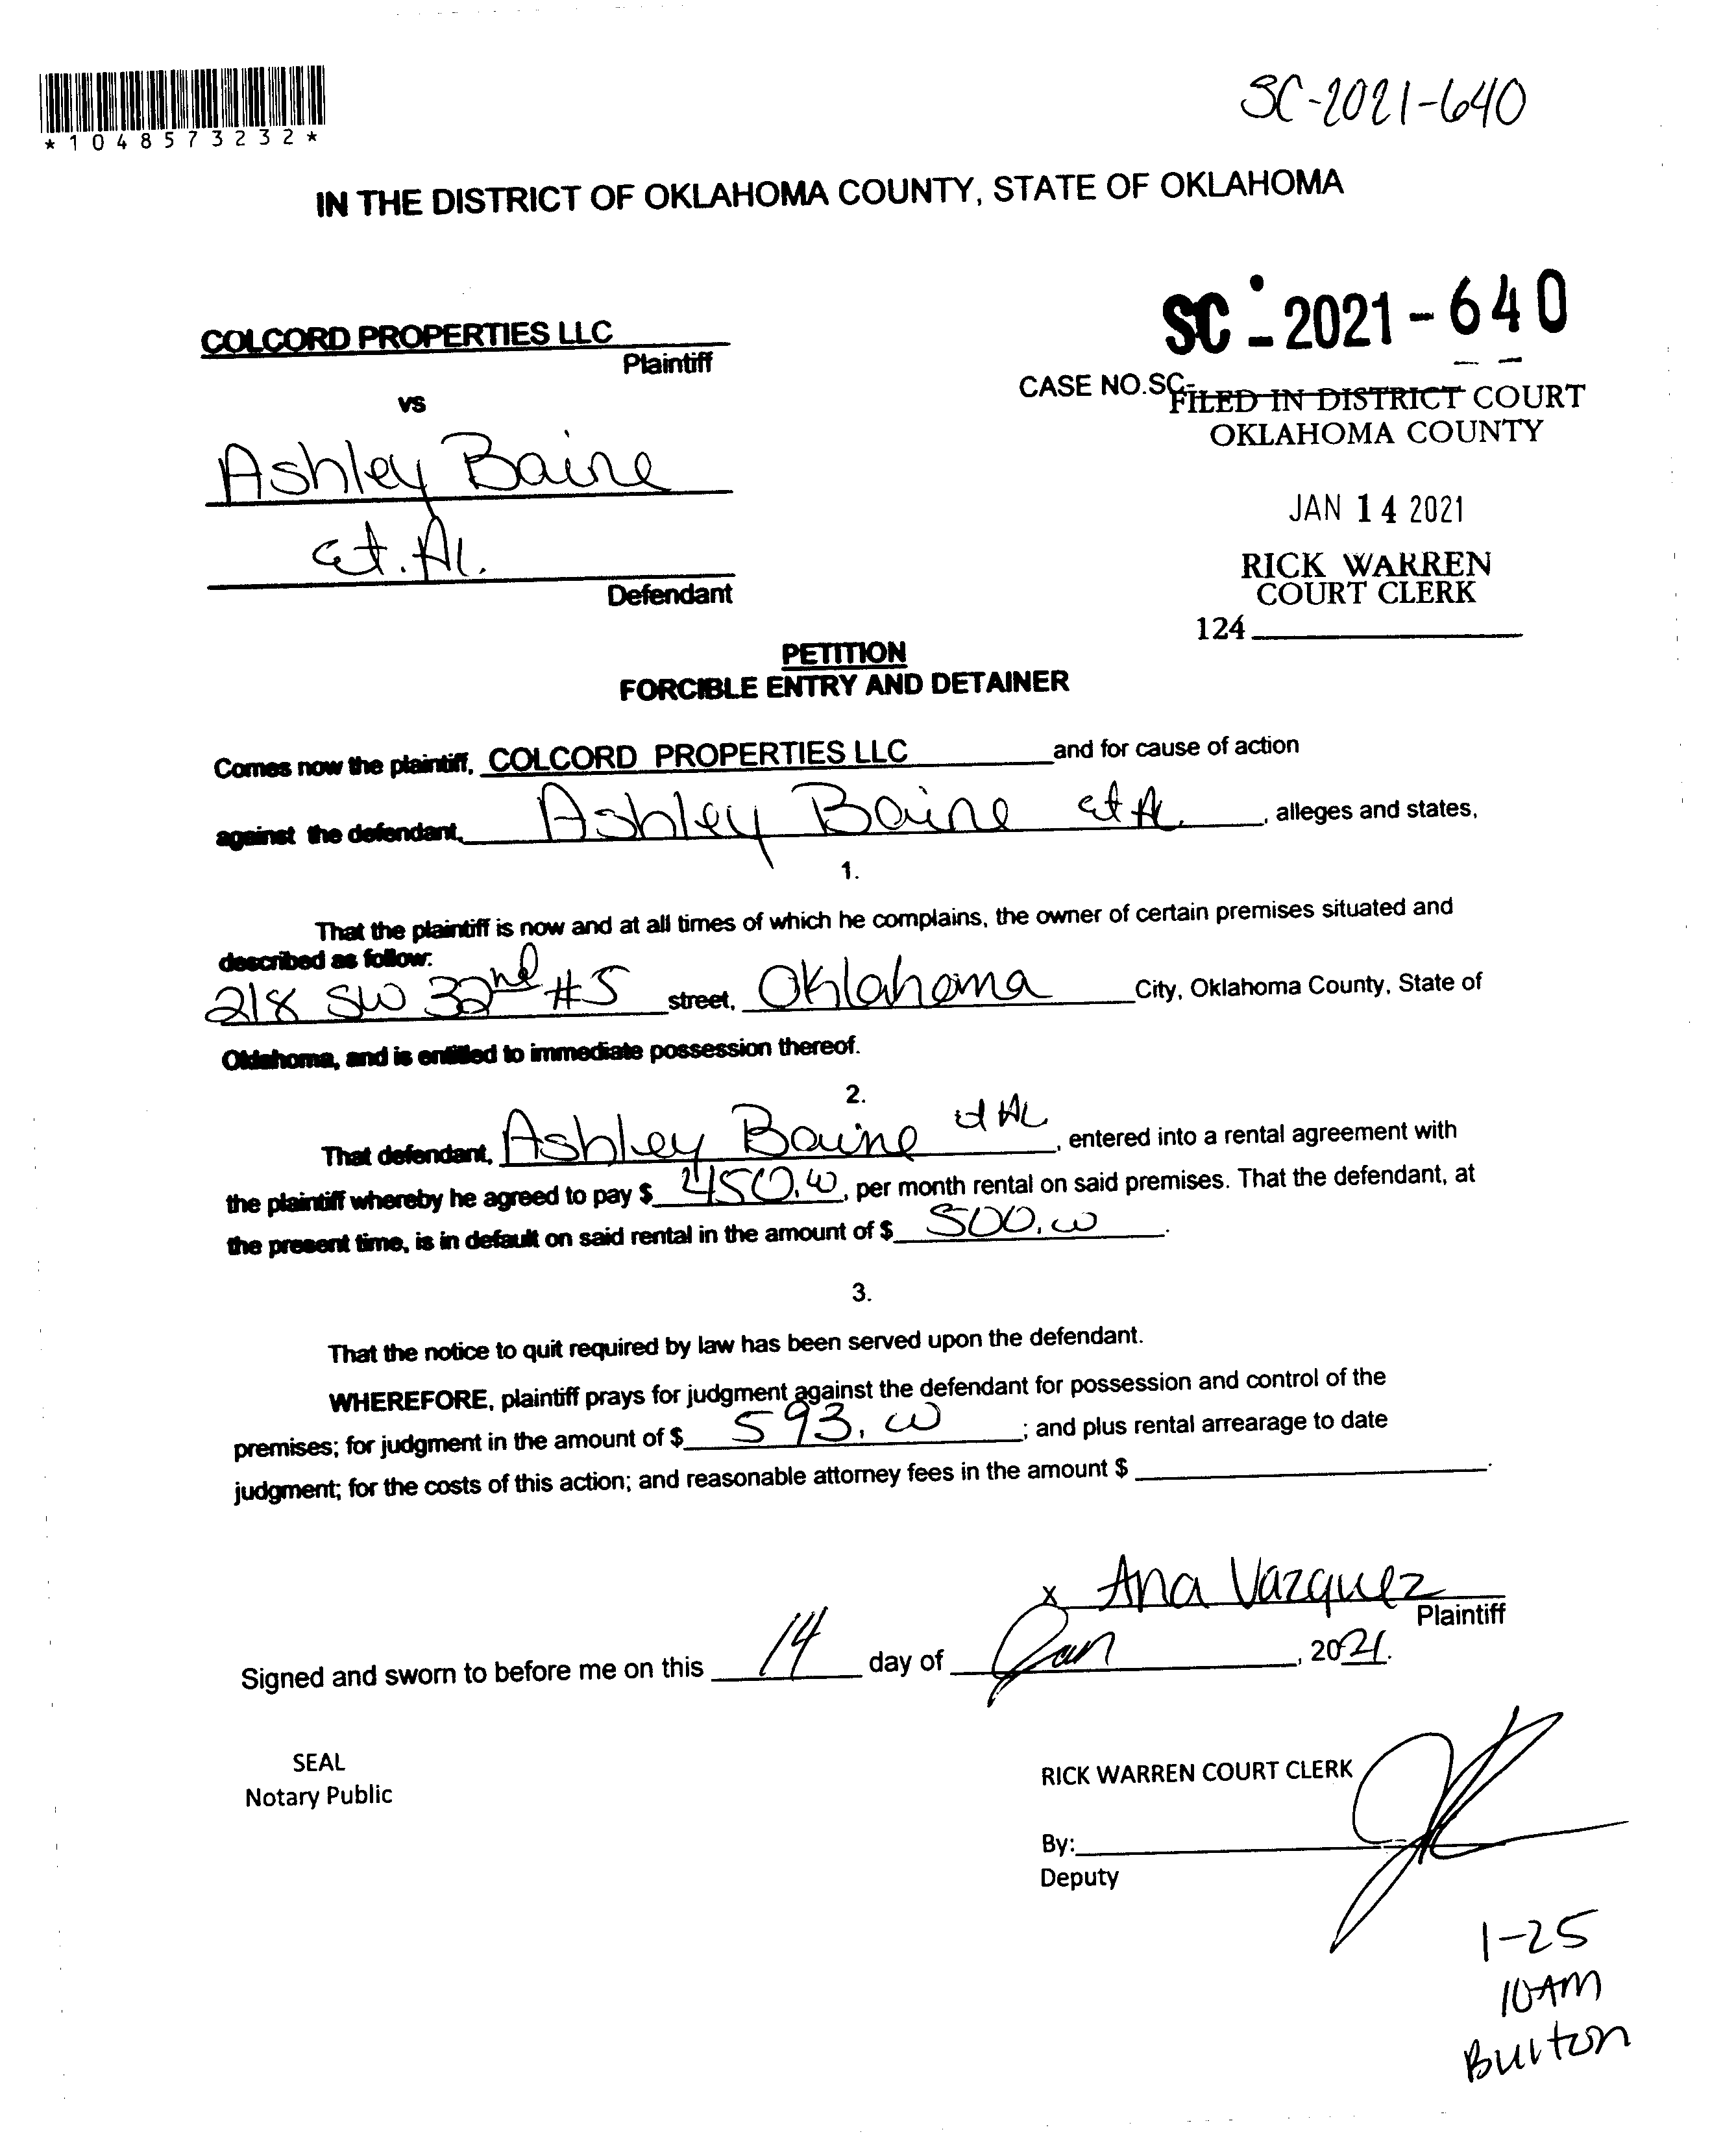 *1048573232*
SC-2021-640
IN THE DISTRICT OF OKLAHOMA COUNTY, STATE OF OKLAHOMA
COLCORD PROPERTIES LLC
Plaintiff
vs
Ashley Baine
et. Al.
Defendant
SC - 2021 - 640
CASE NO.SC-
FILED IN DISTRICT COURT
OKLAHOMA COUNTY
JAN 14 2021
RICK WARREN
COURT CLERK
124
PETITION
FORCIBLE ENTRY AND DETAINER
Comes now the plaintiff, COLCORD PROPERTIES LLC and for cause of action
against the defendant, Ashley Baine et Al. , alleges and states,
1.
That the plaintiff is now and at all times of which he complains, the owner of certain premises situated and
described as follow:
218 SW 32nd #5 street, Oklahoma City, Oklahoma County, State of
Oklahoma, and is entitled to immediate possession thereof.
2.
That defendant, Ashley Baine et AL , entered into a rental agreement with
the plaintiff whereby he agreed to pay $ 450.00 , per month rental on said premises. That the defendant, at
the present time, is in default on said rental in the amount of $ 500.00 .
3.
That the notice to quit required by law has been served upon the defendant.
WHEREFORE, plaintiff prays for judgment against the defendant for possession and control of the
premises; for judgment in the amount of $ 593.00 ; and plus rental arrearage to date
judgment; for the costs of this action; and reasonable attorney fees in the amount $ .
x Ana Vazquez
Plaintiff
Signed and sworn to before me on this 14 day of Jan , 2021.
SEAL
Notary Public
RICK WARREN COURT CLERK
By:
Deputy
1-25
10AM
Burton